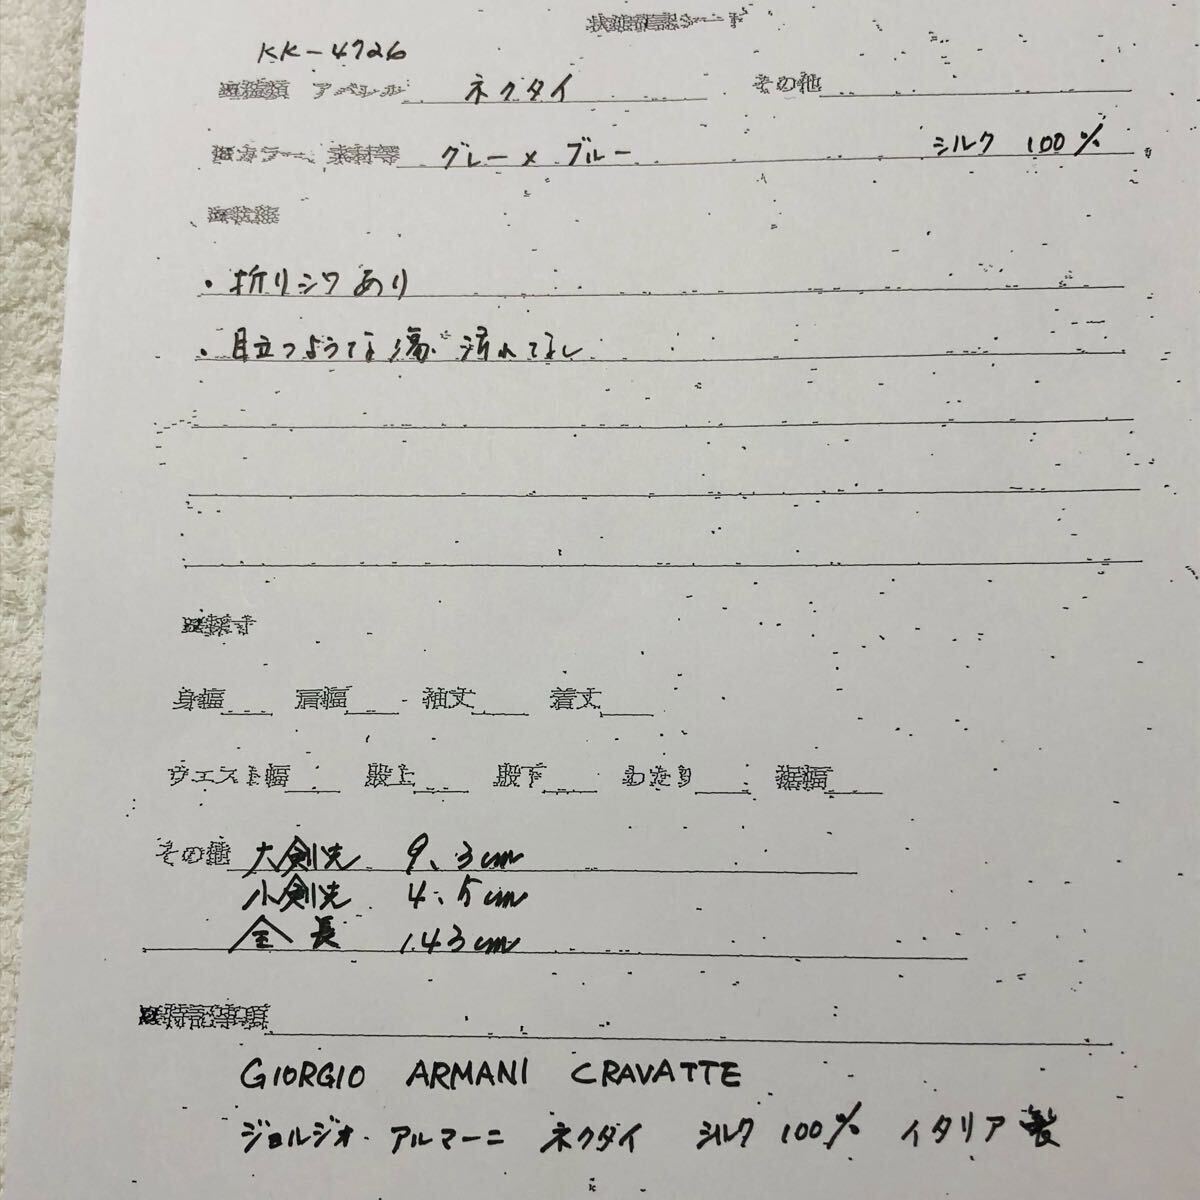 状態確認シート
KK-4726
種類 アパレル ネクタイ その他
カラー、素材等 グレー×ブルー シルク 100%
状態
・折りジワあり
・目立つような傷、汚れなし
採寸
身幅 肩幅 袖丈 着丈
ウエスト幅 股上 股下 わたり 裾幅
その他 大剣先 9.3cm
小剣先 4.5cm
全長 143cm
特記事項
GIORGIO ARMANI CRAVATTE
ジョルジオ・アルマーニ ネクタイ シルク 100% イタリア製